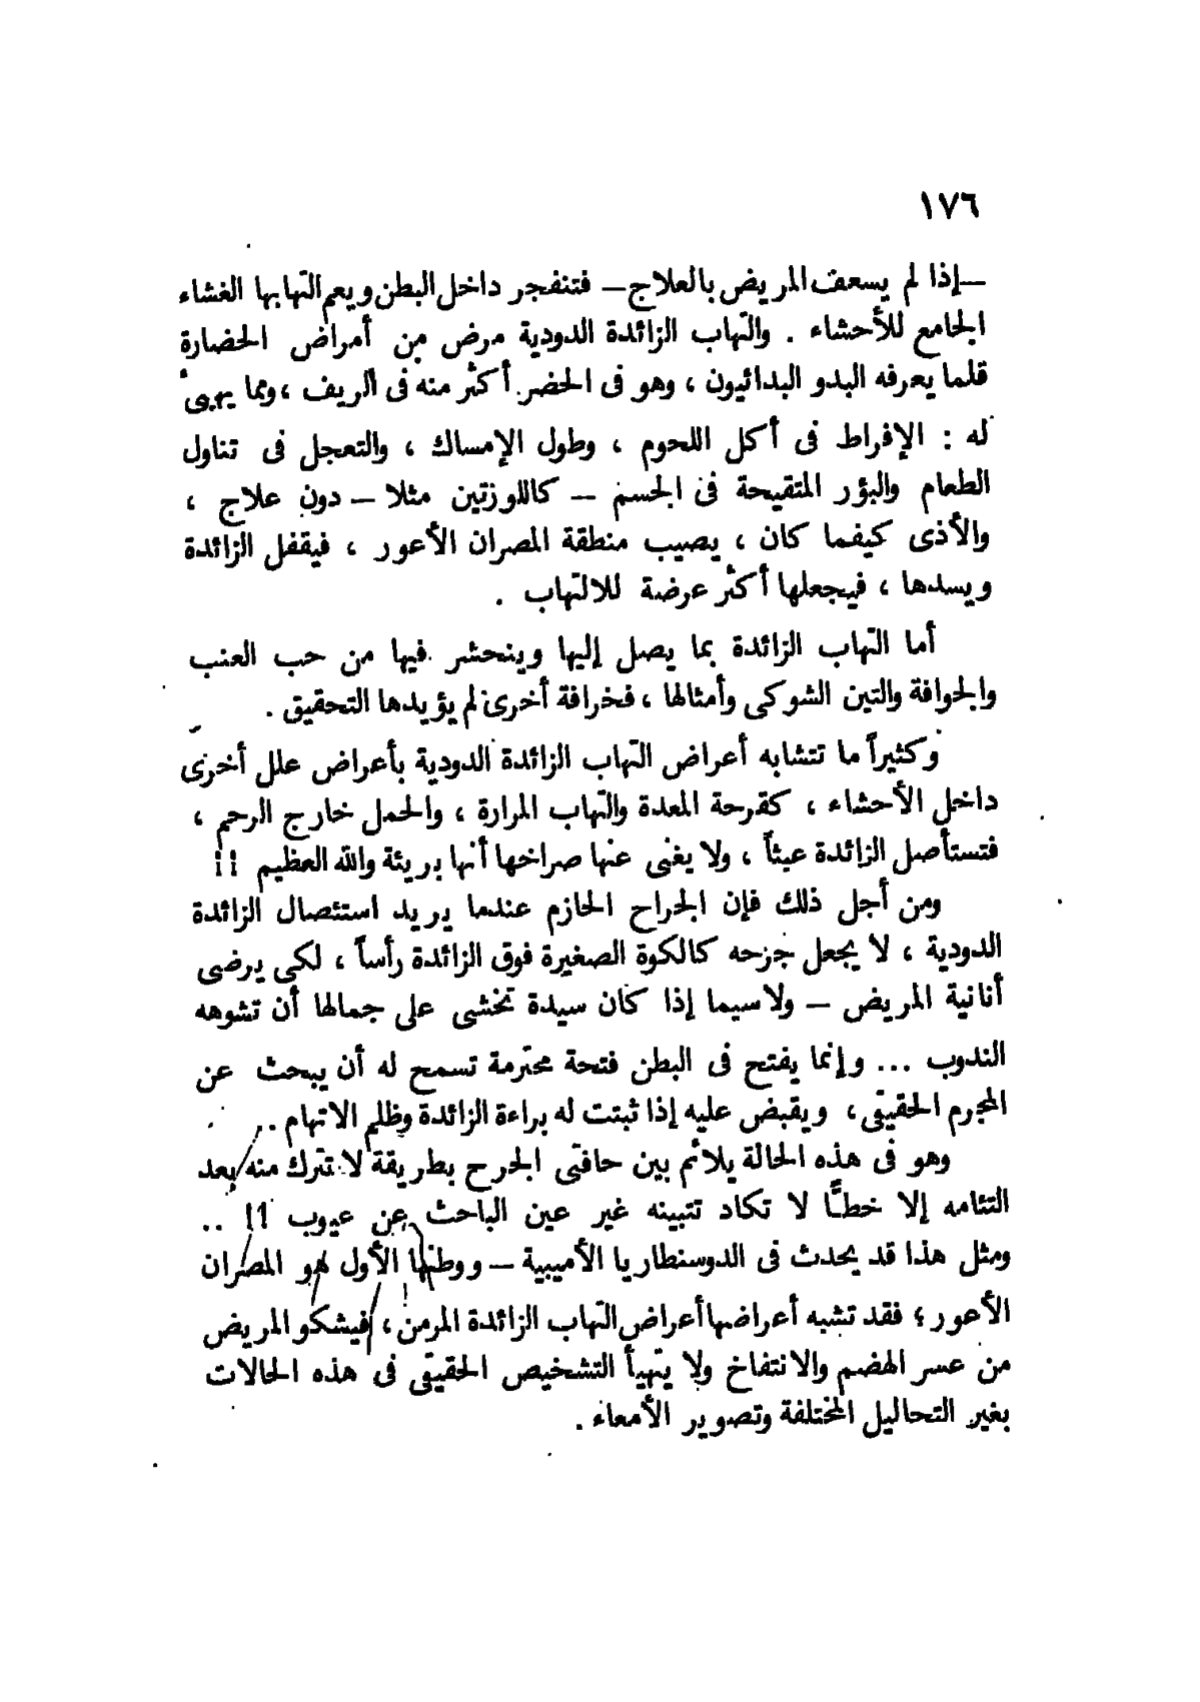 ١٧٦
—إذا لم يسعف المريض بالعلاج— فتنفجر داخل البطن ويعم التهابها الغشاء
الجامع للأحشاء . والتهاب الزائدة الدودية مرض من أمراض الحضارة
قلما يعرفه البدو البدائيون ، وهو فى الحضر أكثر منه فى الريف ، ومما يهيئ
له : الإفراط فى أكل اللحوم ، وطول الإمساك ، والتعجل فى تناول
الطعام والبؤر المتقيحة فى الجسم — كاللوزتين مثلا — دون علاج ،
والأذى كيفما كان ، يصيب منطقة المصران الأعور ، فيقفل الزائدة
ويسدها ، فيجعلها أكثر عرضة للالتهاب .
أما التهاب الزائدة بما يصل إليها وينحشر فيها من حب العنب
والجوافة والتين الشوكى وأمثالها ، فخرافة أخرى لم يؤيدها التحقيق .
وكثيراً ما تتشابه أعراض التهاب الزائدة الدودية بأعراض علل أخرى
داخل الأحشاء ، كقرحة المعدة والتهاب المرارة ، والحمل خارج الرحم ،
فتستأصل الزائدة عبثاً ، ولا يغنى عنها صراخها أنها بريئة والله العظيم !!
ومن أجل ذلك فإن الجراح الحازم عندما يريد استئصال الزائدة
الدودية ، لا يجعل جزحه كالكوة الصغيرة فوق الزائدة رأساً ، لكى يرضى
أنانية المريض — ولا سيما إذا كان سيدة تخشى على جمالها أن تشوهه
الندوب ... وإنما يفتح فى البطن فتحة محترمة تسمح له أن يبحث عن
المجرم الحقيقى ، ويقبض عليه إذا ثبتت له براءة الزائدة وظلم الاتهام ..
وهو فى هذه الحالة يلائم بين حافتى الجرح بطريقة لا تترك منه بعد
التئامه إلا خطًّا لا تكاد تتبينه غير عين الباحث عن عيوب !! ..
ومثل هذا قد يحدث فى الدوسنطاريا الأميبية — ووطنها الأول هو المصران
الأعور ؛ فقد تشبه أعراضها أعراض التهاب الزائدة المزمن ، فيشكو المريض
من عسر الهضم والانتفاخ ولا يتهيأ التشخيص الحقيقى فى هذه الحالات
بغير التحاليل المختلفة وتصوير الأمعاء .